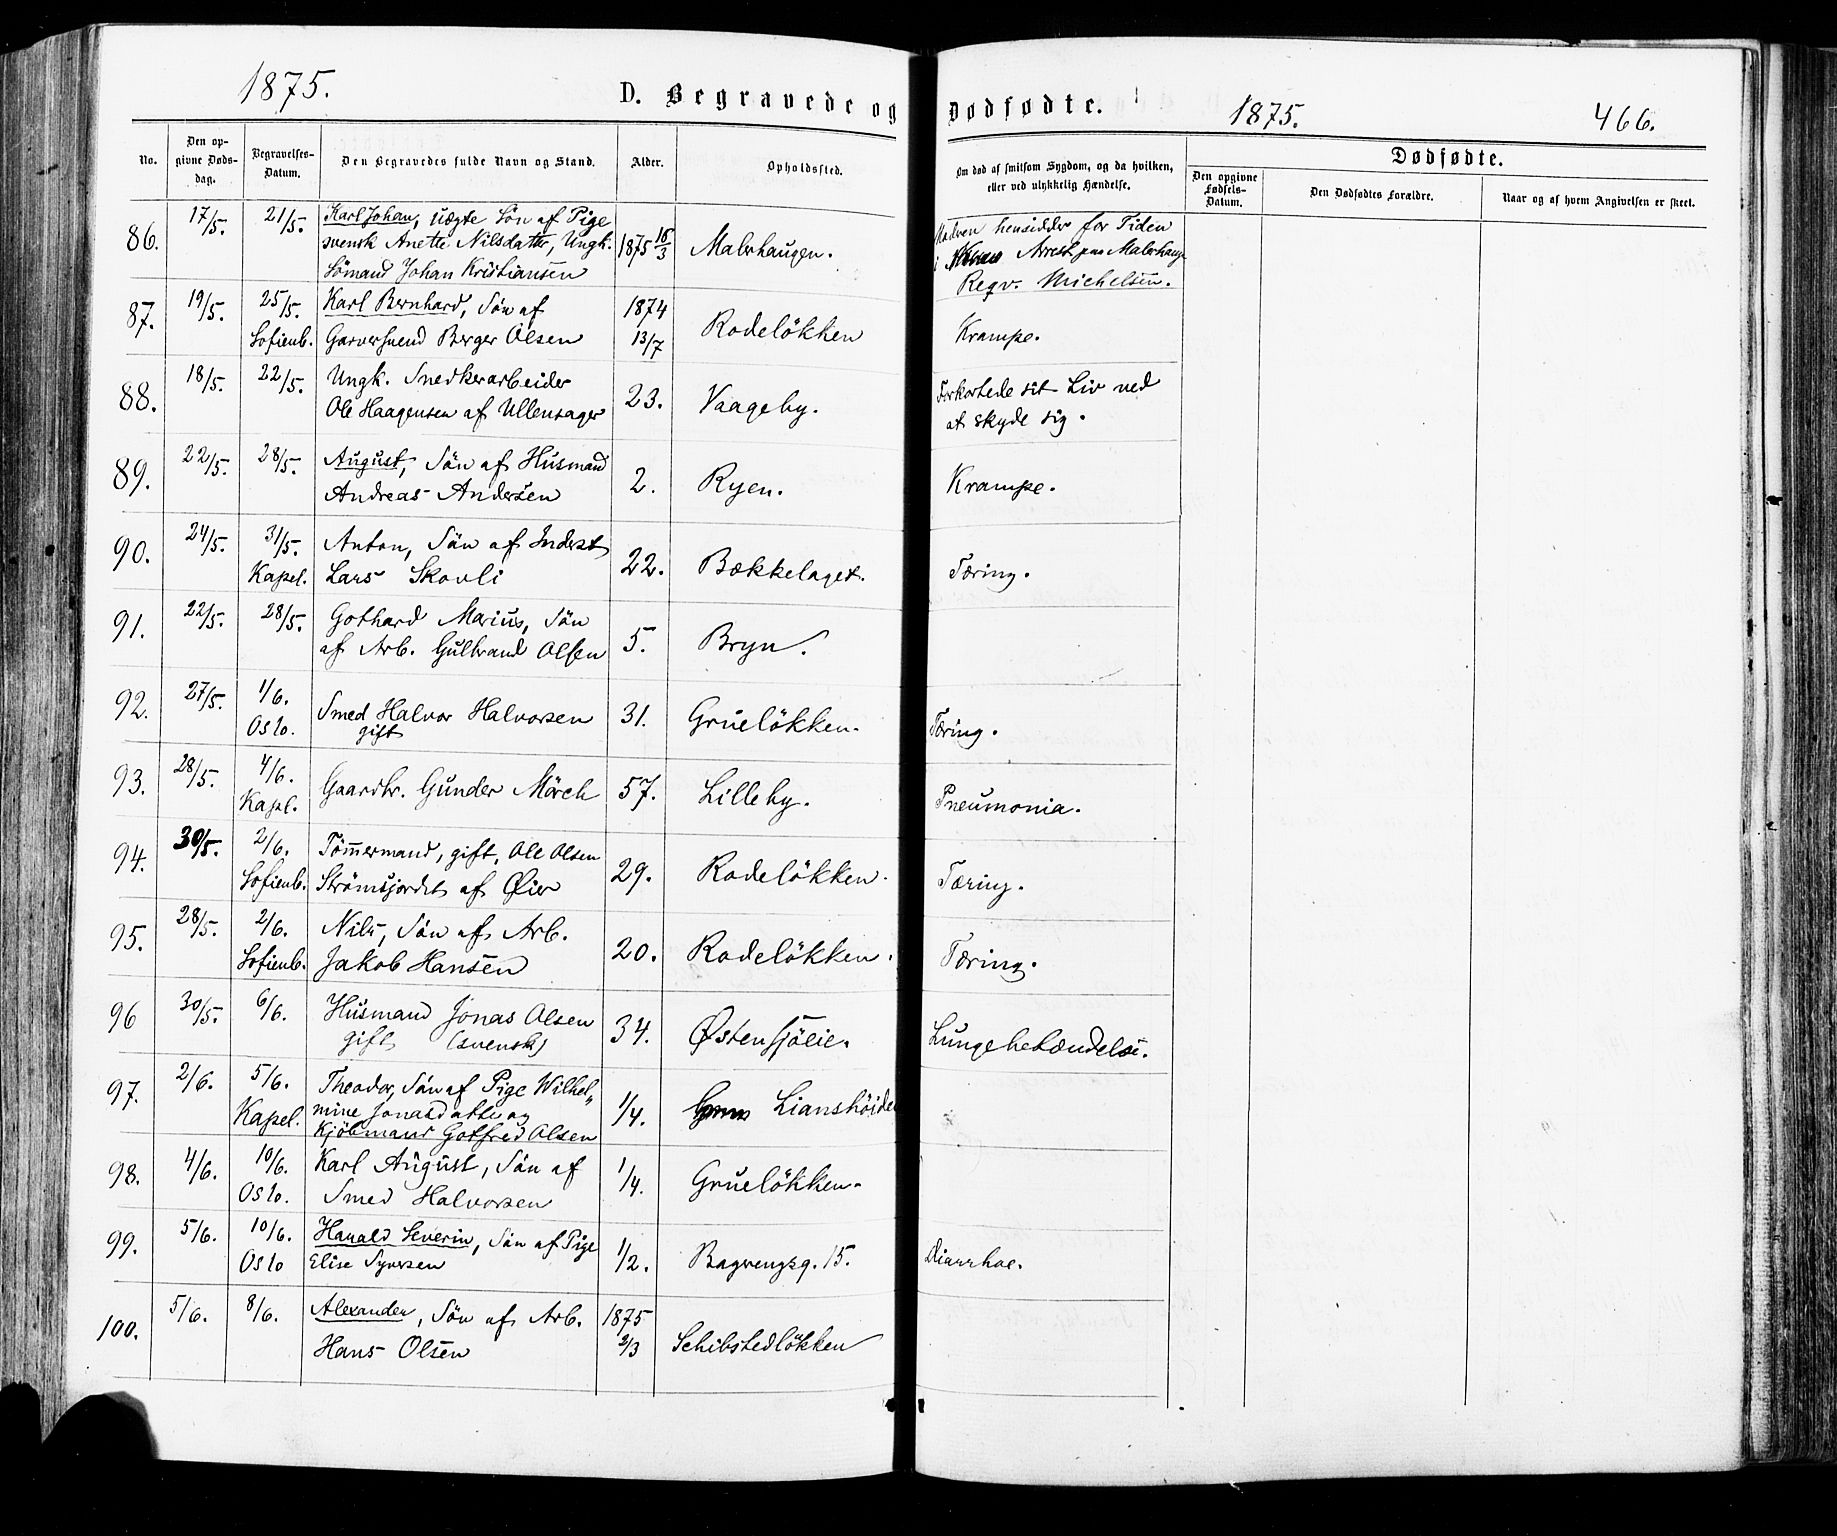 1875.
D. Begravede og Dødfødte.
1875.
466.
No.
Den op-
givne Døds-
dag.
Begravelses-
Datum.
Den Begravedes fulde Navn og Stand.
Alder.
Opholdssted.
Om død af smitsom Sygdom, og da hvilken,
eller ved ulykkelig Hændelse.
Dødfødte.
Den opgivne
Fødsels-
Datum.
Den Dødfødtes Forældre.
Naar og af hvem Angivelsen er skeet.
86.
17/5.
21/5.
Karl Johan, uægte Sön af Pige
svensk Anette Nilsdatter, Ungk.
Sömand Johan Kristiansen
1875 16/3
Malerhaugen.
hensidder for Tiden
i Arrest paa Malerhaug
Reqv. Michelsen.
87.
19/5.
25/5.
Sofienb.
Karl Bernhard, Sön af
Garversvend Berger Olsen
1874
13/7
Rodelökken
Krampe.
88.
18/5.
22/5.
Ungk. Snedkerarbeider
Ole Haagensen af Ullensager
23.
Vaageby.
Forkortede sit Liv ved
at skyde sig.
89.
22/5.
28/5.
August, Sön af Husmand
Andreas Andersen
2.
Ryen.
Krampe.
90.
24/5.
31/5.
Kapel.
Anton, Sön af Inderst
Lars Skovli
22.
Bækkelaget.
Tæring.
91.
22/5.
28/5.
Gothard Marius, Sön
af Arb. Gulbrand Olsen
5.
Bryn.
92.
27/5.
1/6.
Oslo.
Smed Halvor Halvorsen
gift
31.
Gruelökken.
Tæring.
93.
28/5.
4/6.
Kapl.
Gaardbr. Gunder Mörch
57.
Lilleby.
Pneumonia.
94.
30/5.
2/6.
Sofienb.
Tömmermand, gift, Ole Olsen
Strömsjordet af Øier
29.
Rodelökken.
Tæring.
95.
28/5.
2/6.
Sofienb.
Nils, Sön af Arb.
Jakob Hansen
20.
Rodelökken.
Tæring.
96
30/5.
6/6.
Husmand Jonas Olsen
gift (svensk)
34.
Østensjöeie.
Lungebetændelse.
97.
2/6.
5/6.
Kapel.
Theodor, Sön af Pige Wilhel-
mine Jonasdatter og
Kjöbmand Gotfred Olsen
1/4.
Lianshöide
98.
4/6.
10/6.
Oslo.
Karl August, Sön af
Smed Halvorsen
1/4.
Gruelökken.
99.
5/6.
10/6.
Oslo
Harald Severin, Sön af Pige
Elise Syversen
1/2.
Bagvengsg. 15.
Diarrhoe.
100.
5/6.
8/6.
Alexander, Sön af Arb.
Hans Olsen
1875
2/3
Schibstedlökken